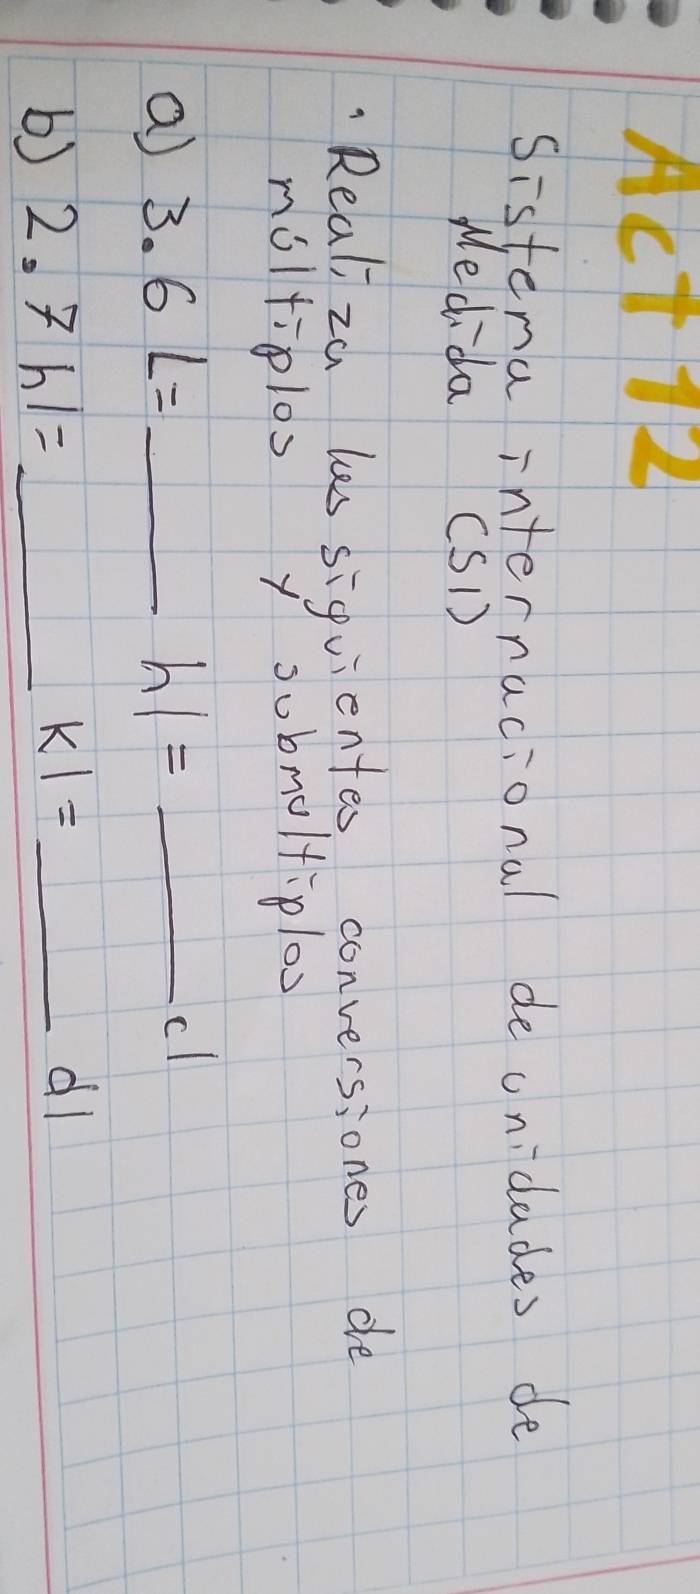 Act 12
Sistema internacional de unidades de
Medida (SI)
· Realiza las siguientes conversiones de
múltiplos y submultiplos
a) 3.6 L= ______ hl = ______ cl
b) 2.7 hl= ______ kl = ______ dl